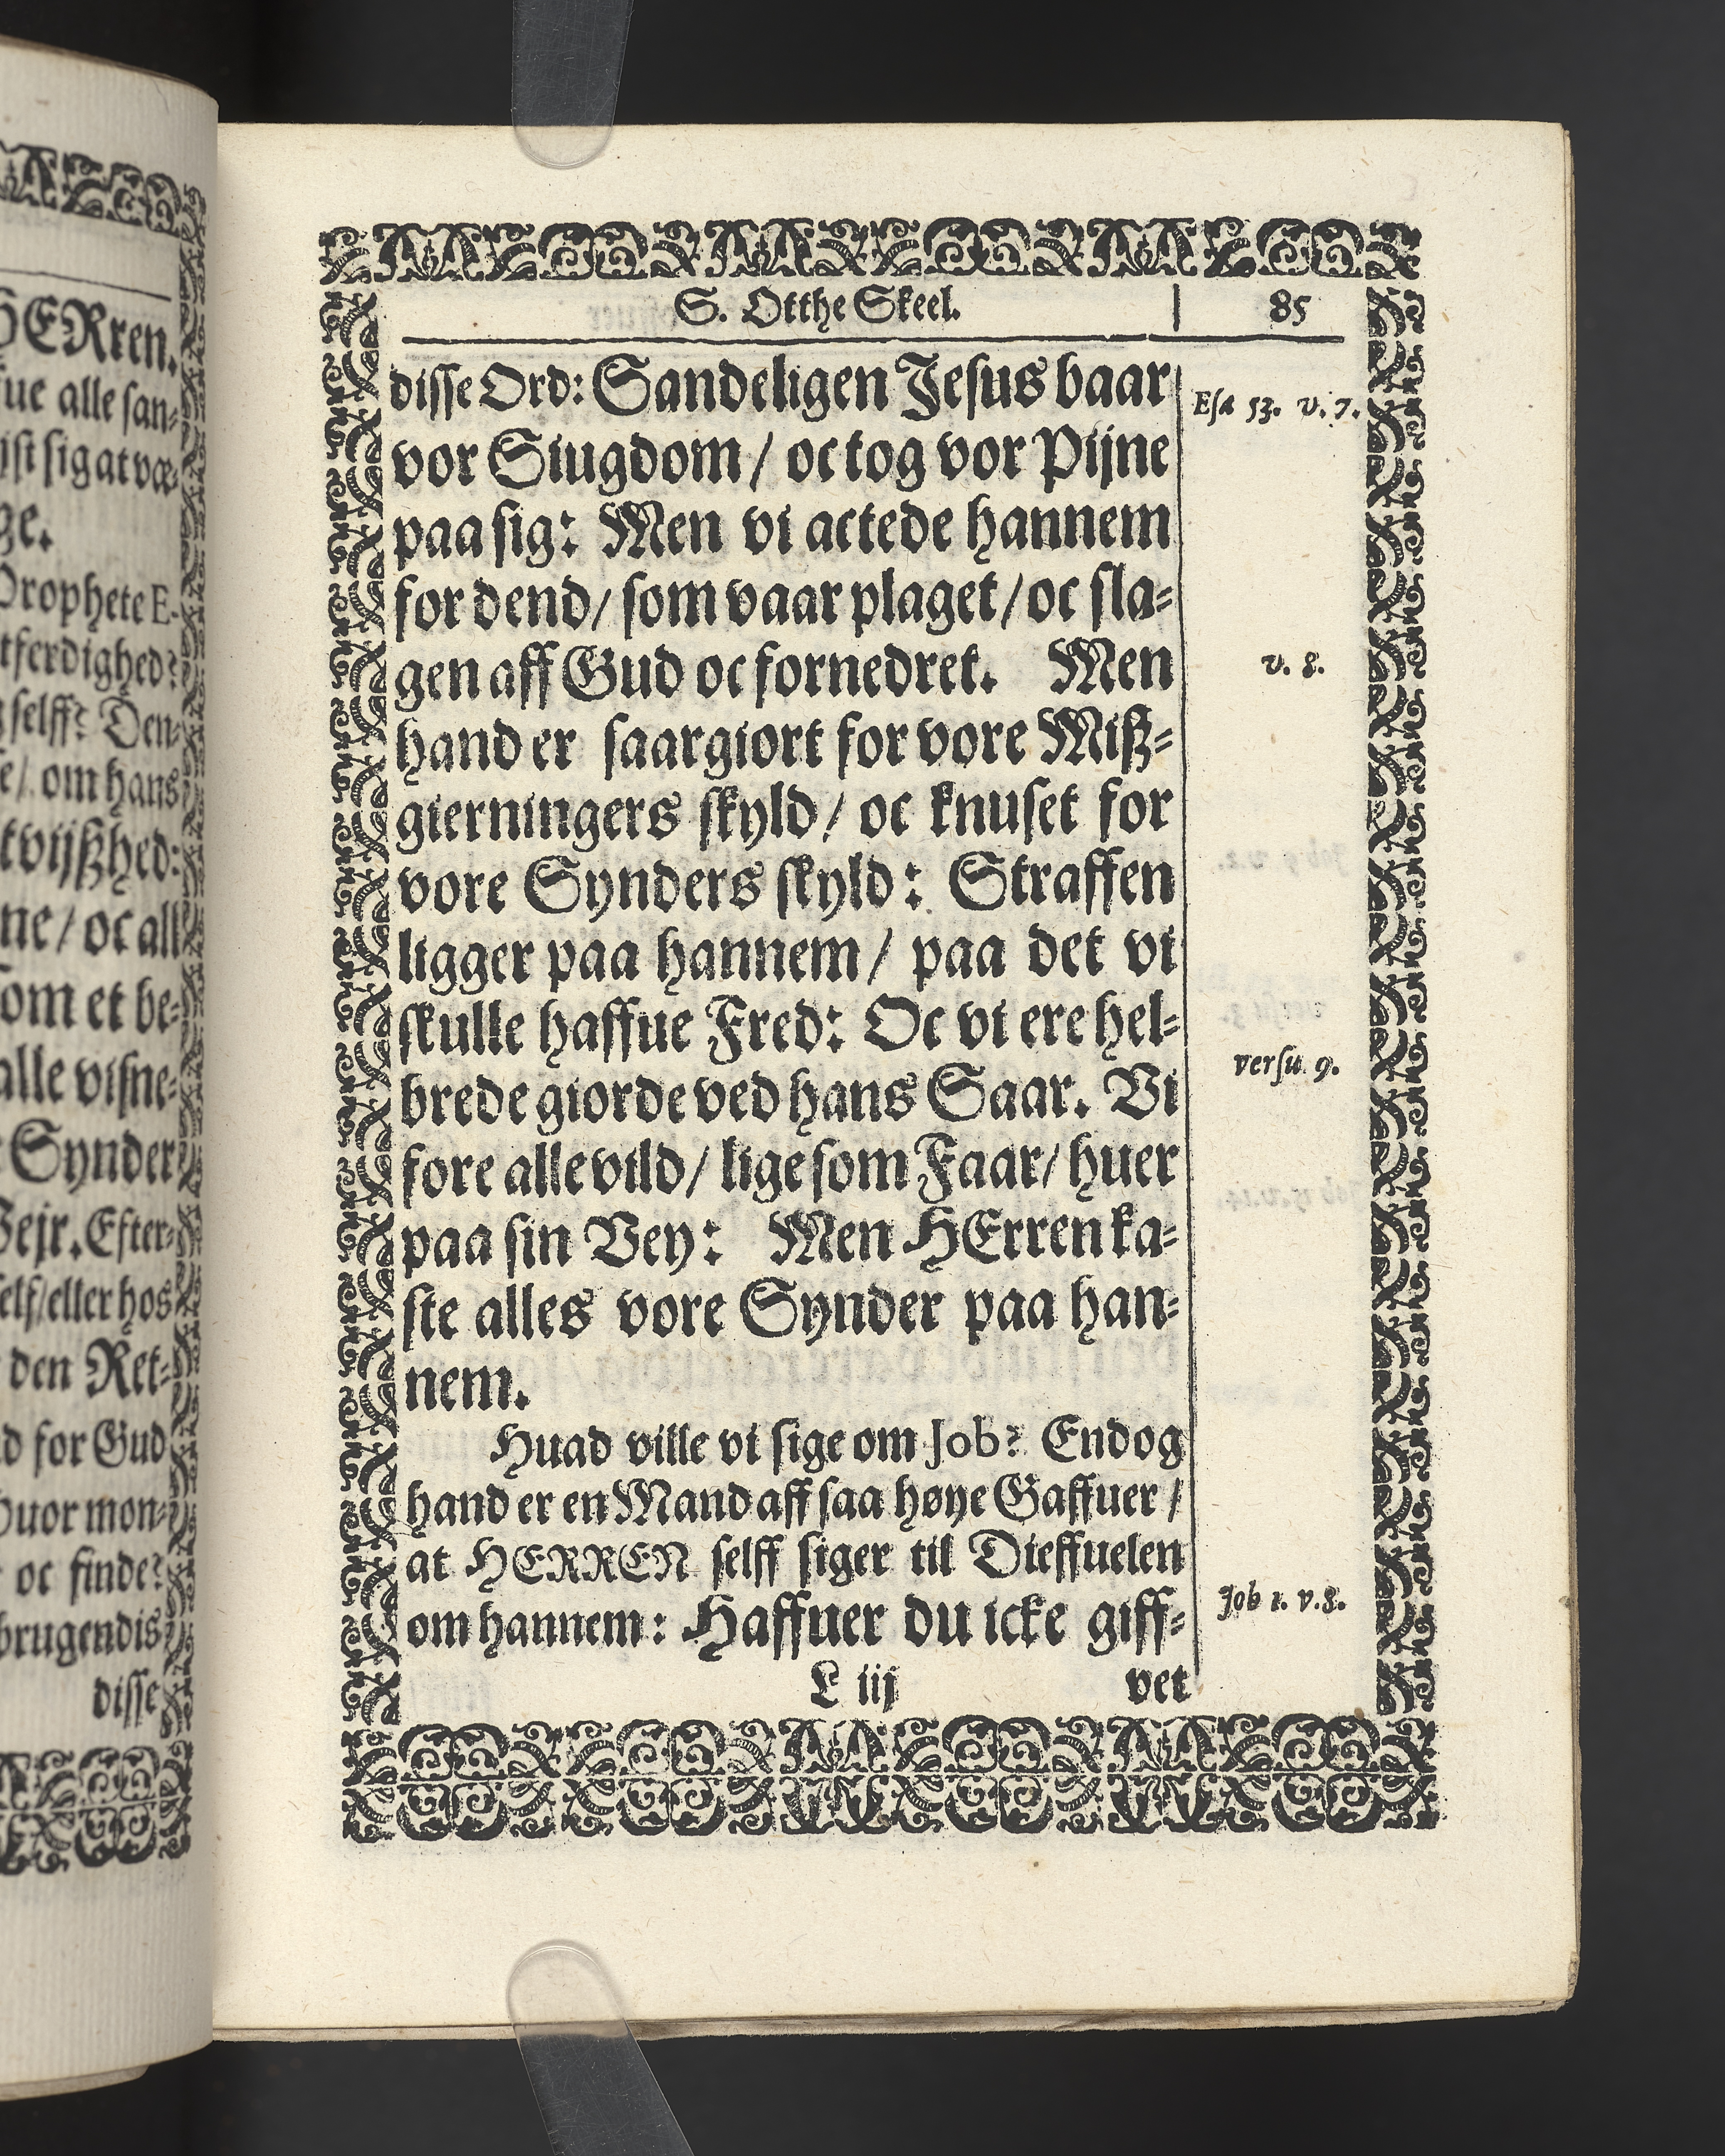 HERren.
fue alle san-
ist sig at væ-
ge.
Prophete E-
tferdighed?
selff? Den-
e/ om hans
tvijßhed:
ne/ oc all
om et be-
alle visne-
Synder
Vejr. Efter-
self/eller hos
den Ret-
d for Gud
Huor mon-
oc finde?
brugendis
disse
S. Otthe Skeel. | 85
disse Ord: Sandeligen Jesus baar
Esa 53. v. 7.
vor Siugdom/ oc tog vor Pijne
paa sig: Men vi actede hannem
for dend/ som vaar plaget/ oc sla-
gen aff Gud oc fornedret. Men
v. 8.
hand er saargiort for vore Miß-
gierningers skyld/ oc knuset for
vore Synders skyld: Straffen
ligger paa hannem/ paa det vi
skulle haffue Fred: Oc vi ere hel-
versu. 9.
brede giorde ved hans Saar. Vi
fore alle vild/ lige som Faar/ huer
paa sin Vey: Men HErren ka-
ste alles vore Synder paa han-
nem.
Huad ville vi sige om Job? Endog
hand er en Mand aff saa høye Gaffuer/
at HERREN selff siger til Dieffuelen
om hannem: Haffuer du icke giff-
Job 1. v. 8.
L iij vet